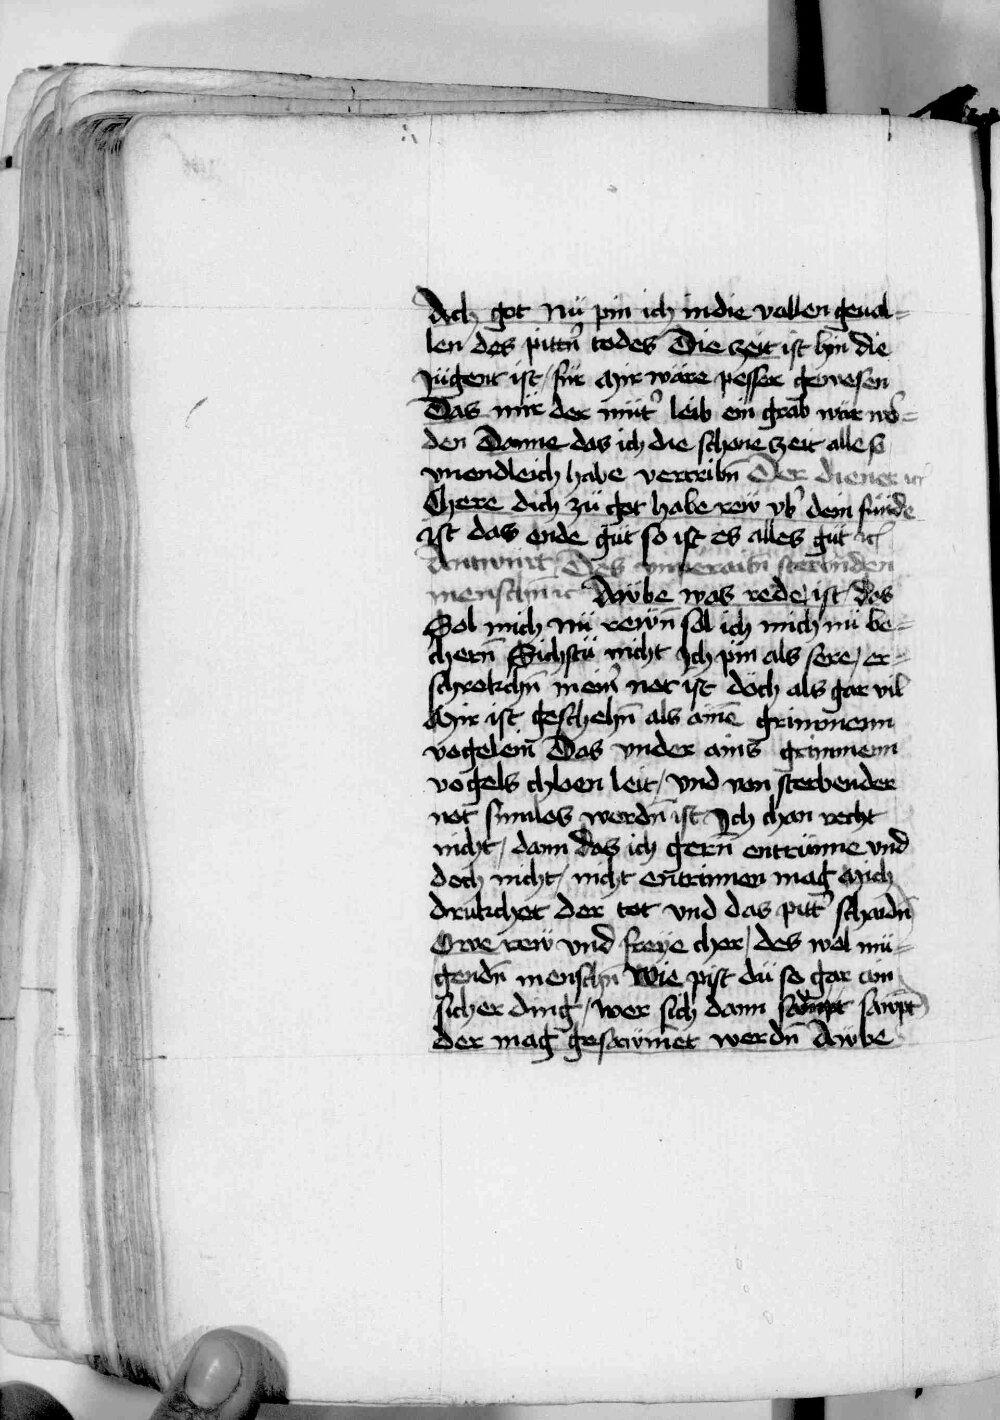 Ach got nü pin ich in die vallen geual=
len des pittñ todes Die zeit ist hin die
Jügent ist / für Mir wäre pesser gewesen
Das mir der müt͛ leib ein grab wär wo͛=
den Danne das ich die schone zeit alle so
vnendleich habe vertribñ Der diener ꝛc
Chere dich zü got habe rew vb͛ dein sünde
ist das ende güt so ist es alles güt ꝛc
Antwürt Des vnberaitñ sterbnden
menschñ ꝛc Awbe was rede ist / das
Sol mich nü rewñ sol ich mich nü be=
chern̄ Sichstü nicht Ich pin als sere / er=
schrokchñ mein͛ not ist doch als gar vil
Mir ist geschehñ als aine͂ grimmenn
vogelein̄ Das vnder ains grimmenn
vogels chloen leit / vnd von sterbender
not sinnlos wordñ ist Ich chan recht
nicht / dann das ich gern̄ entrünne vnd
doch nicht / nicht entrinnen mag Mich
drukchet der tot vnd das pitt͛ schaidñ
Owe rew vnd freye cher / des wol mü=
gendñ menschñ Wie pist dü so gar ain
sicher ding / wer sich dann sawpt
der mag gesawmet werdñ Awbe